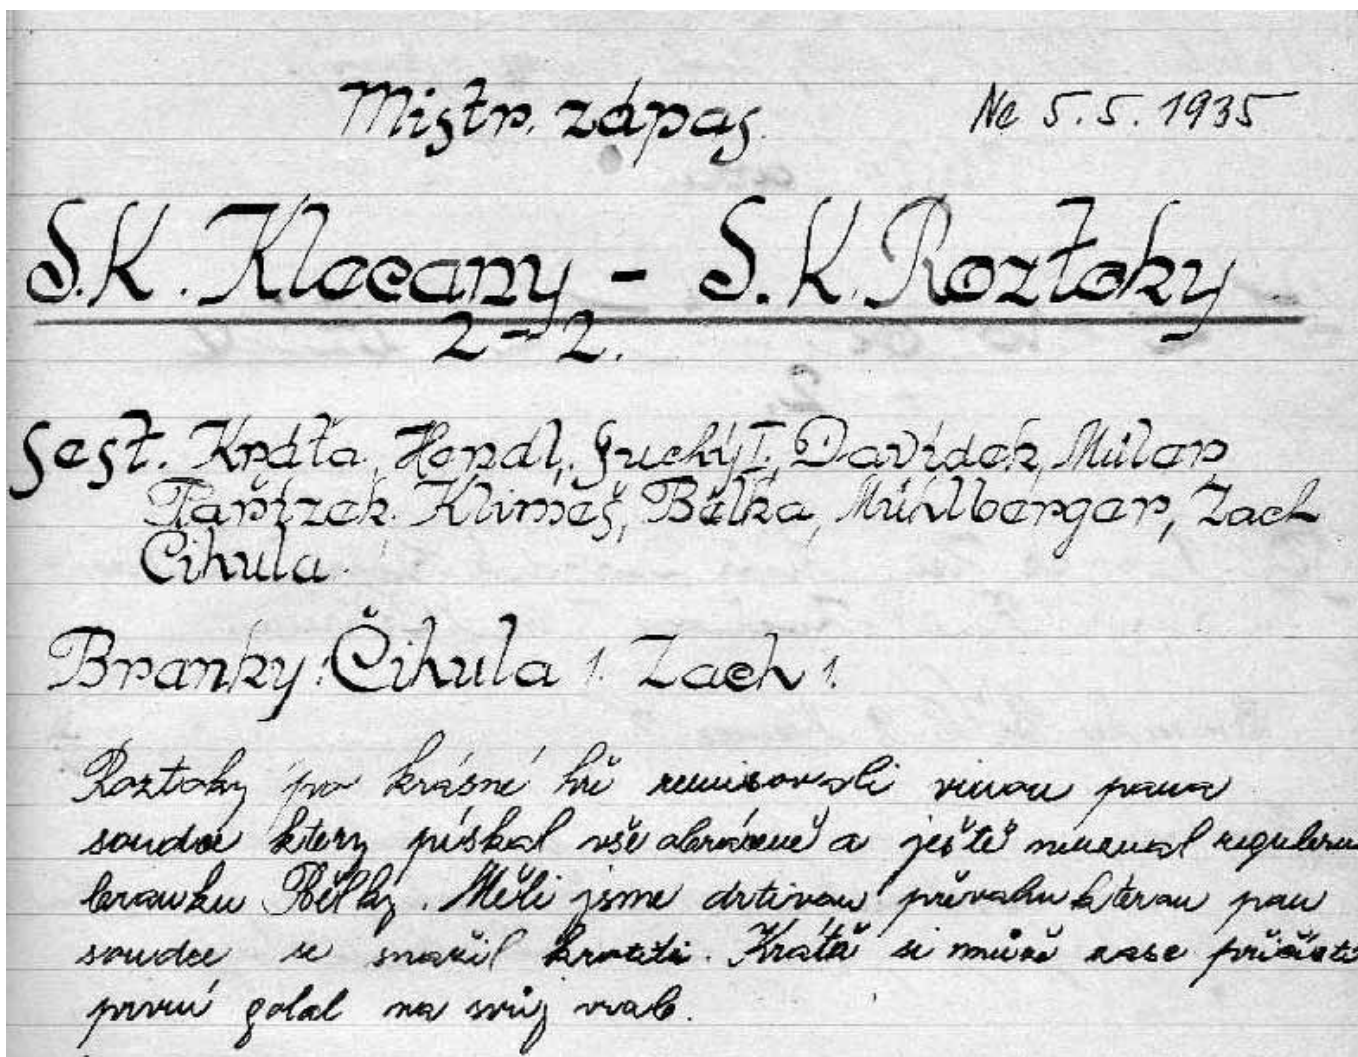 Mistr. zápas. Ne 5.5.1935
S.K. Klecany - S.K. Roztoky
2-2.
Sest. Kráťa, Hendl, Suchý I, Davídek, Müler,
Pařízek, Klimeš, Bělka, Mühlberger, Zach
Čihula.
Branky: Čihula 1. Zach 1.
Roztoky po krásné hře remisovali vinou pana
soudce ktery pískal vše obráceně a ještě neuznal regulerní
branku Bělky. Měli jsme drtivou převahu kterou pan
soudce se snažil krotiti. Kráťa si může zase přičísti
první golal na svůj vrub.